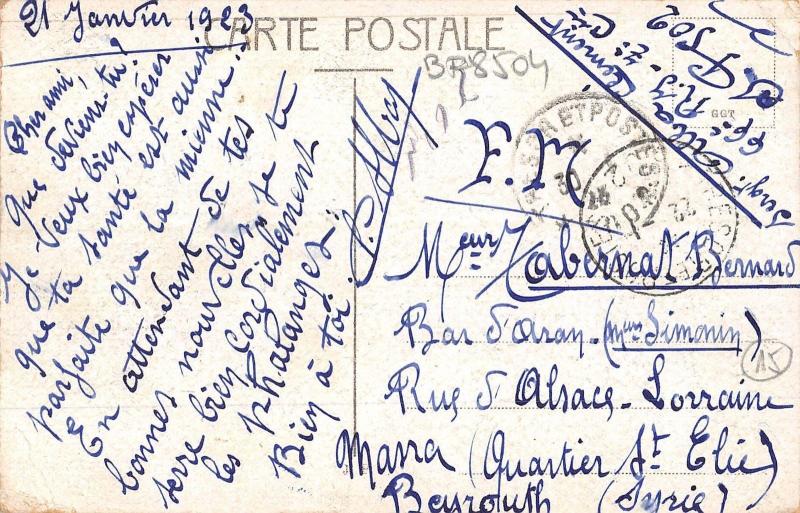 21 Janvier 1923
CARTE POSTALE
BR8504
Cher ami,
Que deviens-tu?
Je veux bien espérer
que ta santé est aussi
parfaite que la mienne..
En attendant de tes
bonnes nouvelles, je te
serre bien cordialement
les phalanges.
Bien à toi.
Sergt. Clément
R.S.
S.P. 502
GGT
F.M
Meur Tabernat Bernard
Bar d'Aran - (Mme Simonin)
Rue d'Alsace-Lorraine
15
Massa (Quartier St. Elie)
Beyrouth (Syrie)